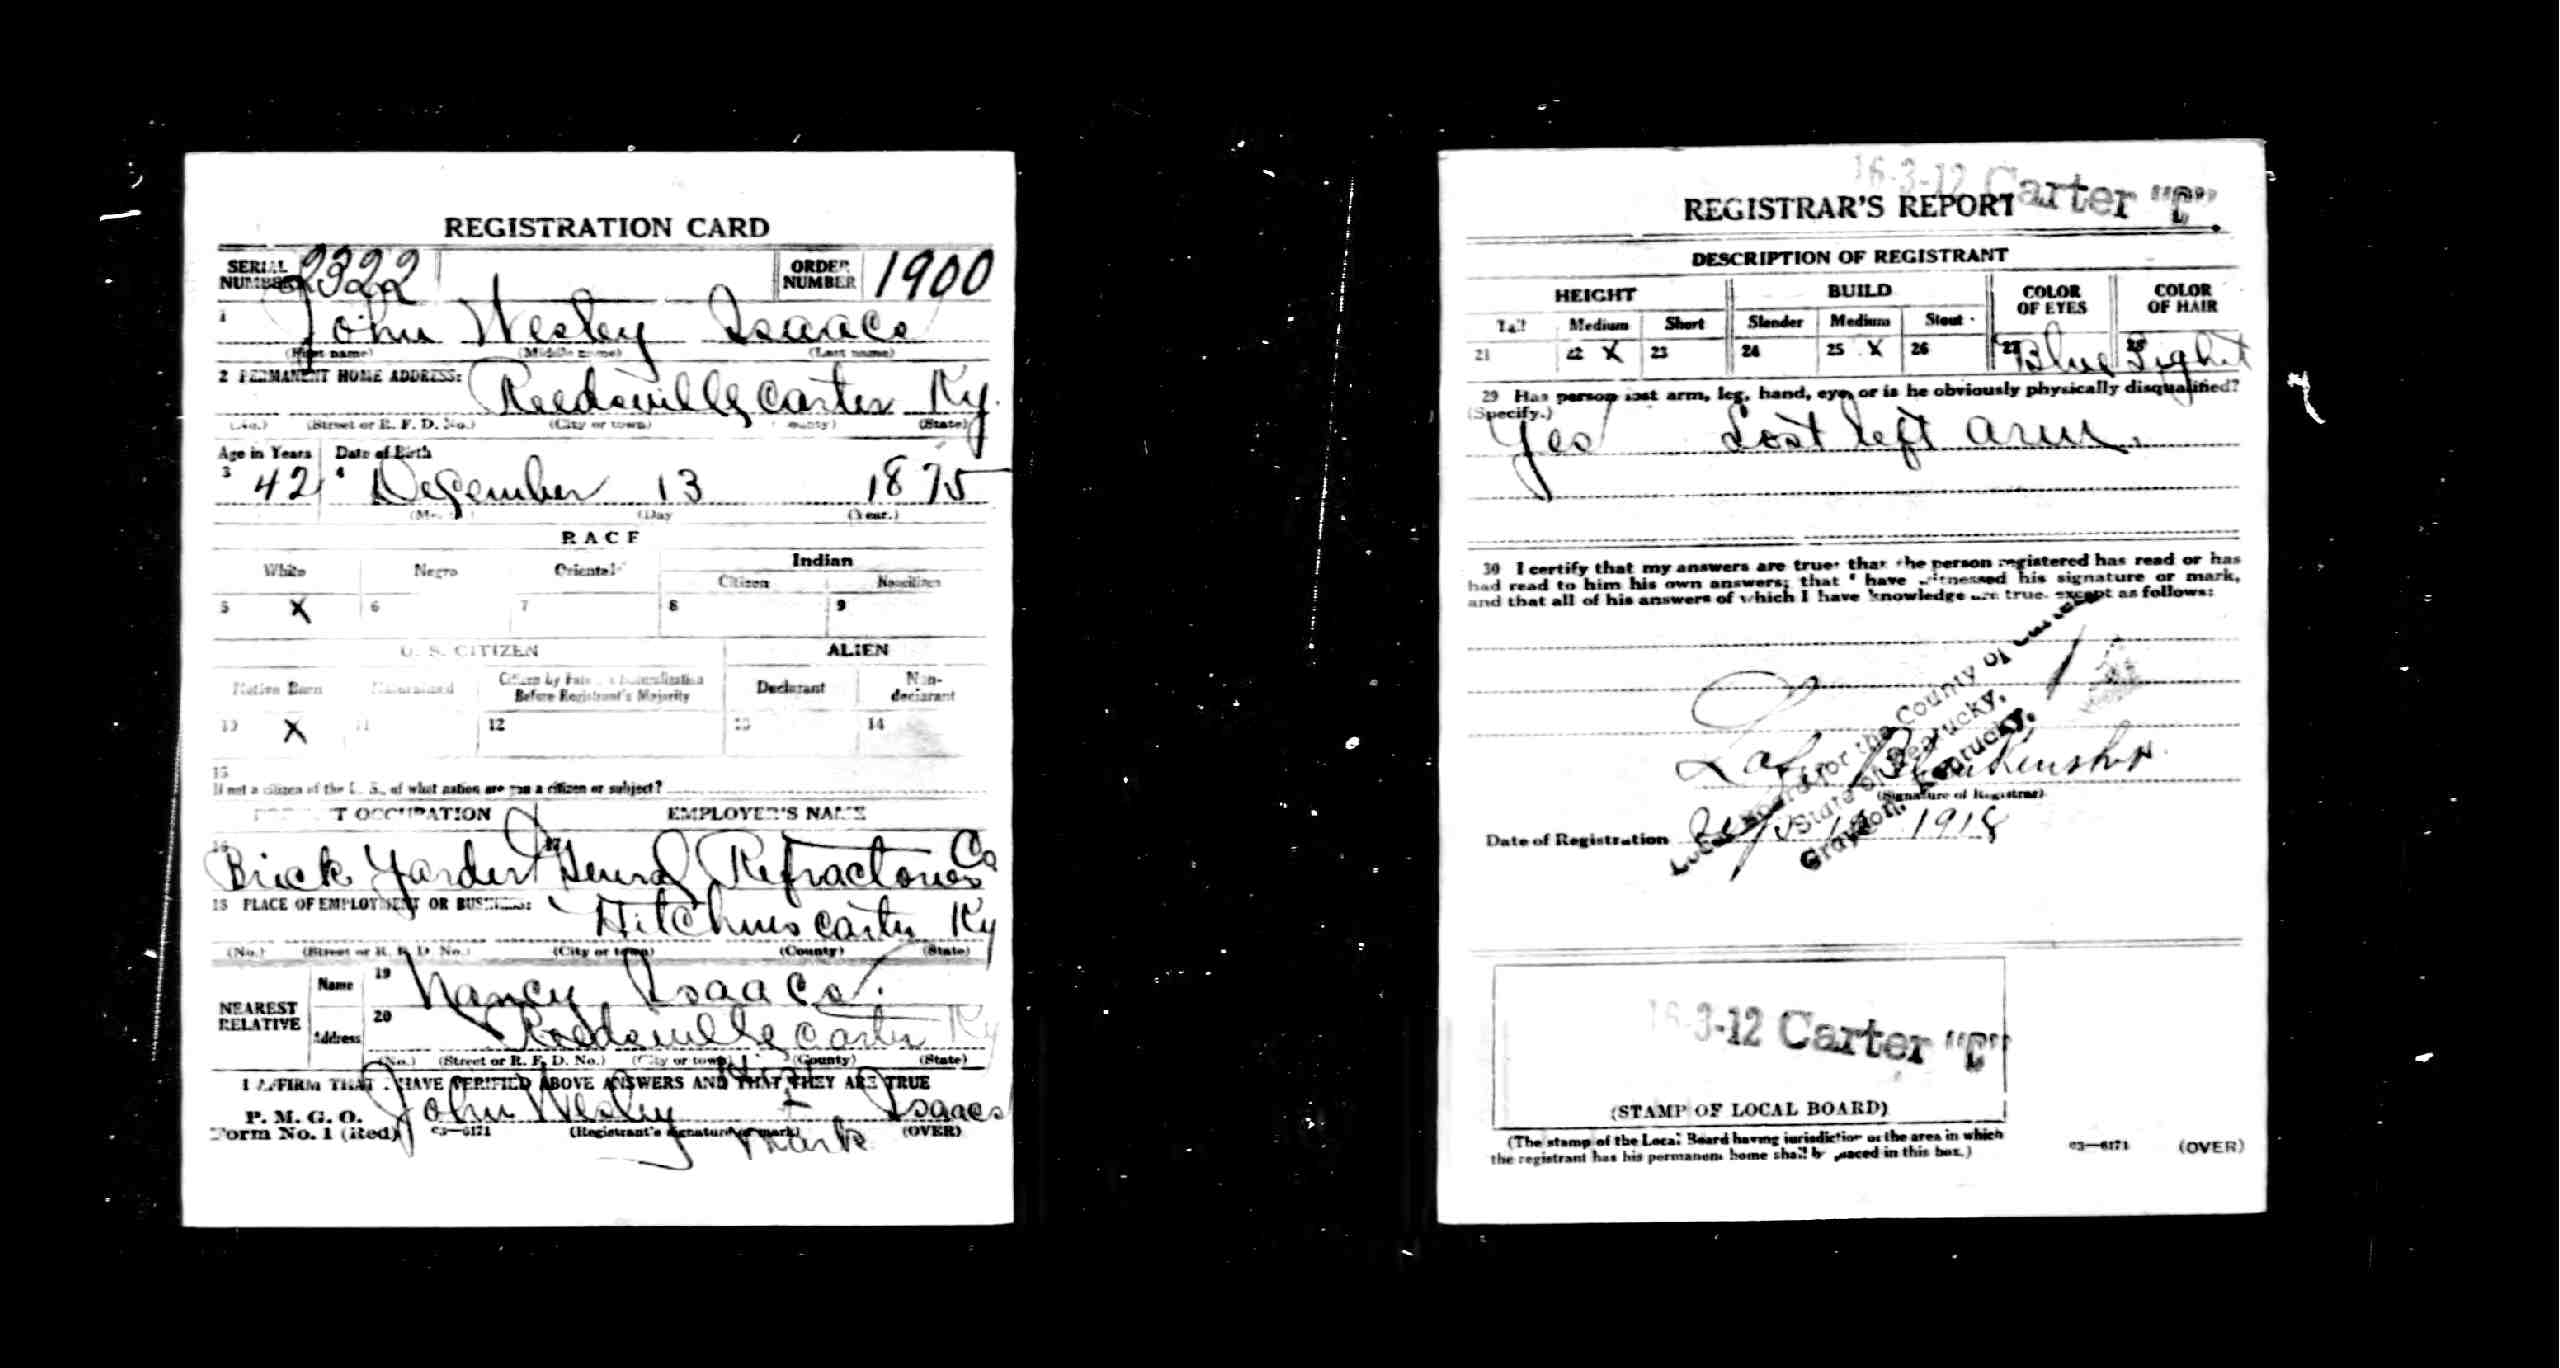 REGISTRATION CARD
SERIAL NUMBER 2322 ORDER NUMBER 1900
1 John Wesley Isaacs
(First name) (Middle name) (Last name)
2 PERMANENT HOME ADDRESS:
Reedsville Carter Ky.
(No.) (Street or R. F. D. No.) (City or town) (County) (State)
Age in Years Date of Birth
3 42 4 December 13 1875
(Day (Year.)
RACE
White Negro Oriental Indian
Citizen Noncitizen
5 X 6 7 8 9
U. S. CITIZEN ALIEN
Native Born Naturalized Citizen by Father's Naturalization Before Registrant's Majority Declarant Non-declarant
10 X 11 12 13 14
15
If not a citizen of the U. S., of what nation are you a citizen or subject?
OCCUPATION EMPLOYER'S NAME
16 Brick Yarder 17 General Refractories Co
18 PLACE OF EMPLOYMENT OR BUSINESS:
Hitchins Carter Ky
(No.) (Street or R. F. D. No.) (City or town) (County) (State)
NEAREST RELATIVE Name 19 Nancy Isaacs.
Address 20 Reedsville Carter Ky
(No.) (Street or R. F. D. No.) (City or town) (County) (State)
I AFFIRM THAT I HAVE VERIFIED ABOVE ANSWERS AND THAT THEY ARE TRUE
P. M. G. O.
Form No. 1 (Red) 03—6171
His
John Wesley + Isaacs
(Registrant's signature or mark) (OVER)
mark
16-3-12 Carter "C"
REGISTRAR'S REPORT
DESCRIPTION OF REGISTRANT
HEIGHT BUILD COLOR OF EYES COLOR OF HAIR
Tall Medium Short Slender Medium Stout
21 22 X 23 24 25 X 26 27 Blue 28 Light
29 Has person lost arm, leg, hand, eye, or is he obviously physically disqualified?
(Specify.)
Yes Lost left arm.
30 I certify that my answers are true; that the person registered has read or has
had read to him his own answers; that I have witnessed his signature or mark,
and that all of his answers of which I have knowledge are true, except as follows:
Blankenship
(Signature of Registrar)
Date of Registration 1918
Local Board for the County of Carter
State of Kentucky,
Grayson, Kentucky.
16-3-12 Carter "C"
(STAMP OF LOCAL BOARD)
(The stamp of the Local Board having jurisdiction of the area in which
the registrant has his permanent home shall be placed in this box.)
03—6171 (OVER)